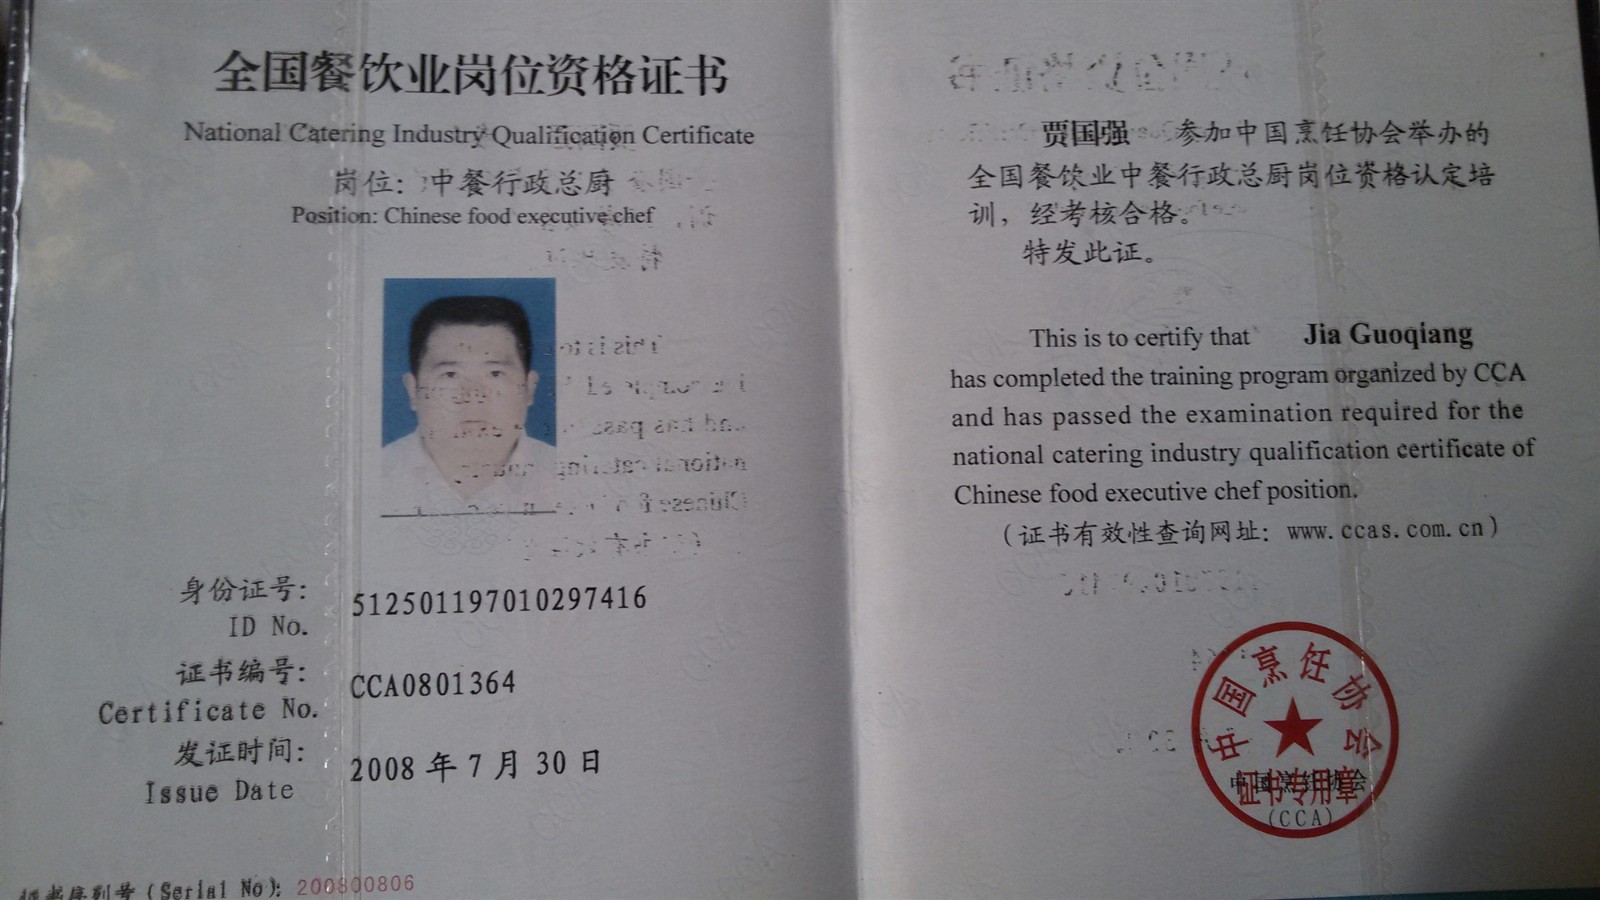 全国餐饮业岗位资格证书
National Catering Industry Qualification Certificate
岗位：中餐行政总厨
Position: Chinese food executive chef
身份证号：
ID No.
512501197010297416
证书编号：
Certificate No.
CCA0801364
发证时间：
Issue Date
2008 年 7 月 30 日
证书序列号 (Serial No): 200800806
贾国强 参加中国烹饪协会举办的
全国餐饮业中餐行政总厨岗位资格认定培
训，经考核合格。
特发此证。
This is to certify that Jia Guoqiang
has completed the training program organized by CCA
and has passed the examination required for the
national catering industry qualification certificate of
Chinese food executive chef position.
（证书有效性查询网址：www.ccas.com.cn）
中国烹饪协会
证书专用章
中国烹饪协会
(CCA)